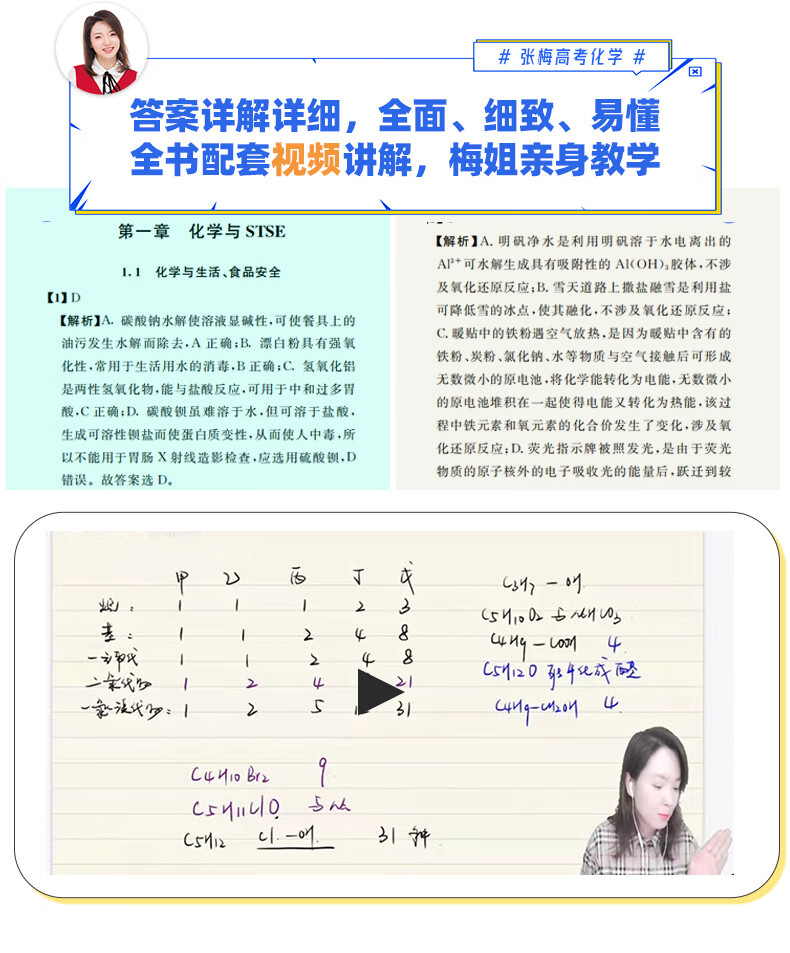 # 张梅高考化学 #
答案详解详细，全面、细致、易懂
全书配套视频讲解，梅姐亲身教学
第一章 化学与 STSE
1.1 化学与生活、食品安全
【1】D
【解析】A. 碳酸钠水解使溶液显碱性,可使餐具上的
油污发生水解而除去,A 正确;B. 漂白粉具有强氧
化性,常用于生活用水的消毒,B 正确;C. 氢氧化铝
是两性氢氧化物,能与盐酸反应,可用于中和过多胃
酸,C 正确;D. 碳酸钡虽难溶于水,但可溶于盐酸,
生成可溶性钡盐而使蛋白质变性,从而使人中毒,所
以不能用于胃肠 X 射线造影检查,应选用硫酸钡,D
错误。故答案选 D。
【解析】A. 明矾净水是利用明矾溶于水电离出的
Al³⁺可水解生成具有吸附性的 Al(OH)₃胶体,不涉
及氧化还原反应;B. 雪天道路上撒盐融雪是利用盐
可降低雪的冰点,使其融化,不涉及氧化还原反应;
C. 暖贴中的铁粉遇空气放热,是因为暖贴中含有的
铁粉、炭粉、氯化钠、水等物质与空气接触后可形成
无数微小的原电池,将化学能转化为电能,无数微小
的原电池堆积在一起使得电能又转化为热能,该过
程中铁元素和氧元素的化合价发生了变化,涉及氧
化还原反应;D. 荧光指示牌被照发光,是由于荧光
物质的原子核外的电子吸收光的能量后,跃迁到较
甲 乙 丙 丁 戊
烃: 1 1 1 2 3
基: 1 1 2 4 8
一卤代 1 1 2 4 8
二氯代物 1 2 4 21
一氯一溴代物: 1 2 5 31
C4H10Br2 9
C5H11ClO 与Na
C5H12 Cl. 一OH. 31 种
C3H7 一OH.
C5H10O2 与NaHCO3
C4H9 — COOH 4.
C5H12O 氧化成醛
C4H9-CH2OH 4.